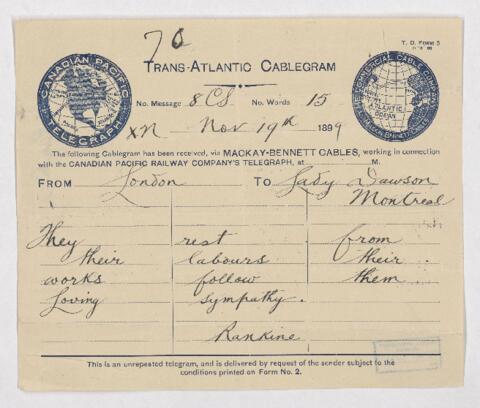 70
T. D. Form 3
TRANS-ATLANTIC CABLEGRAM
CANADIAN PACIFIC TELEGRAPH
COMMERCIAL CABLE COMPANY
ATLANTIC OCEAN
MACKAY-BENNETT CABLES
No. Message 8CS No. Words 15
XN Nov 19th 1899
The following Cablegram has been received, via MACKAY-BENNETT CABLES, working in connection
with the CANADIAN PACIFIC RAILWAY COMPANY'S TELEGRAPH, at M.
FROM London TO Lady Dawson
Montreal
They rest from
their labours their
works follow them
Loving sympathy.
Rankine
This is an unrepeated telegram, and is delivered by request of the sender subject to the
conditions printed on Form No. 2.